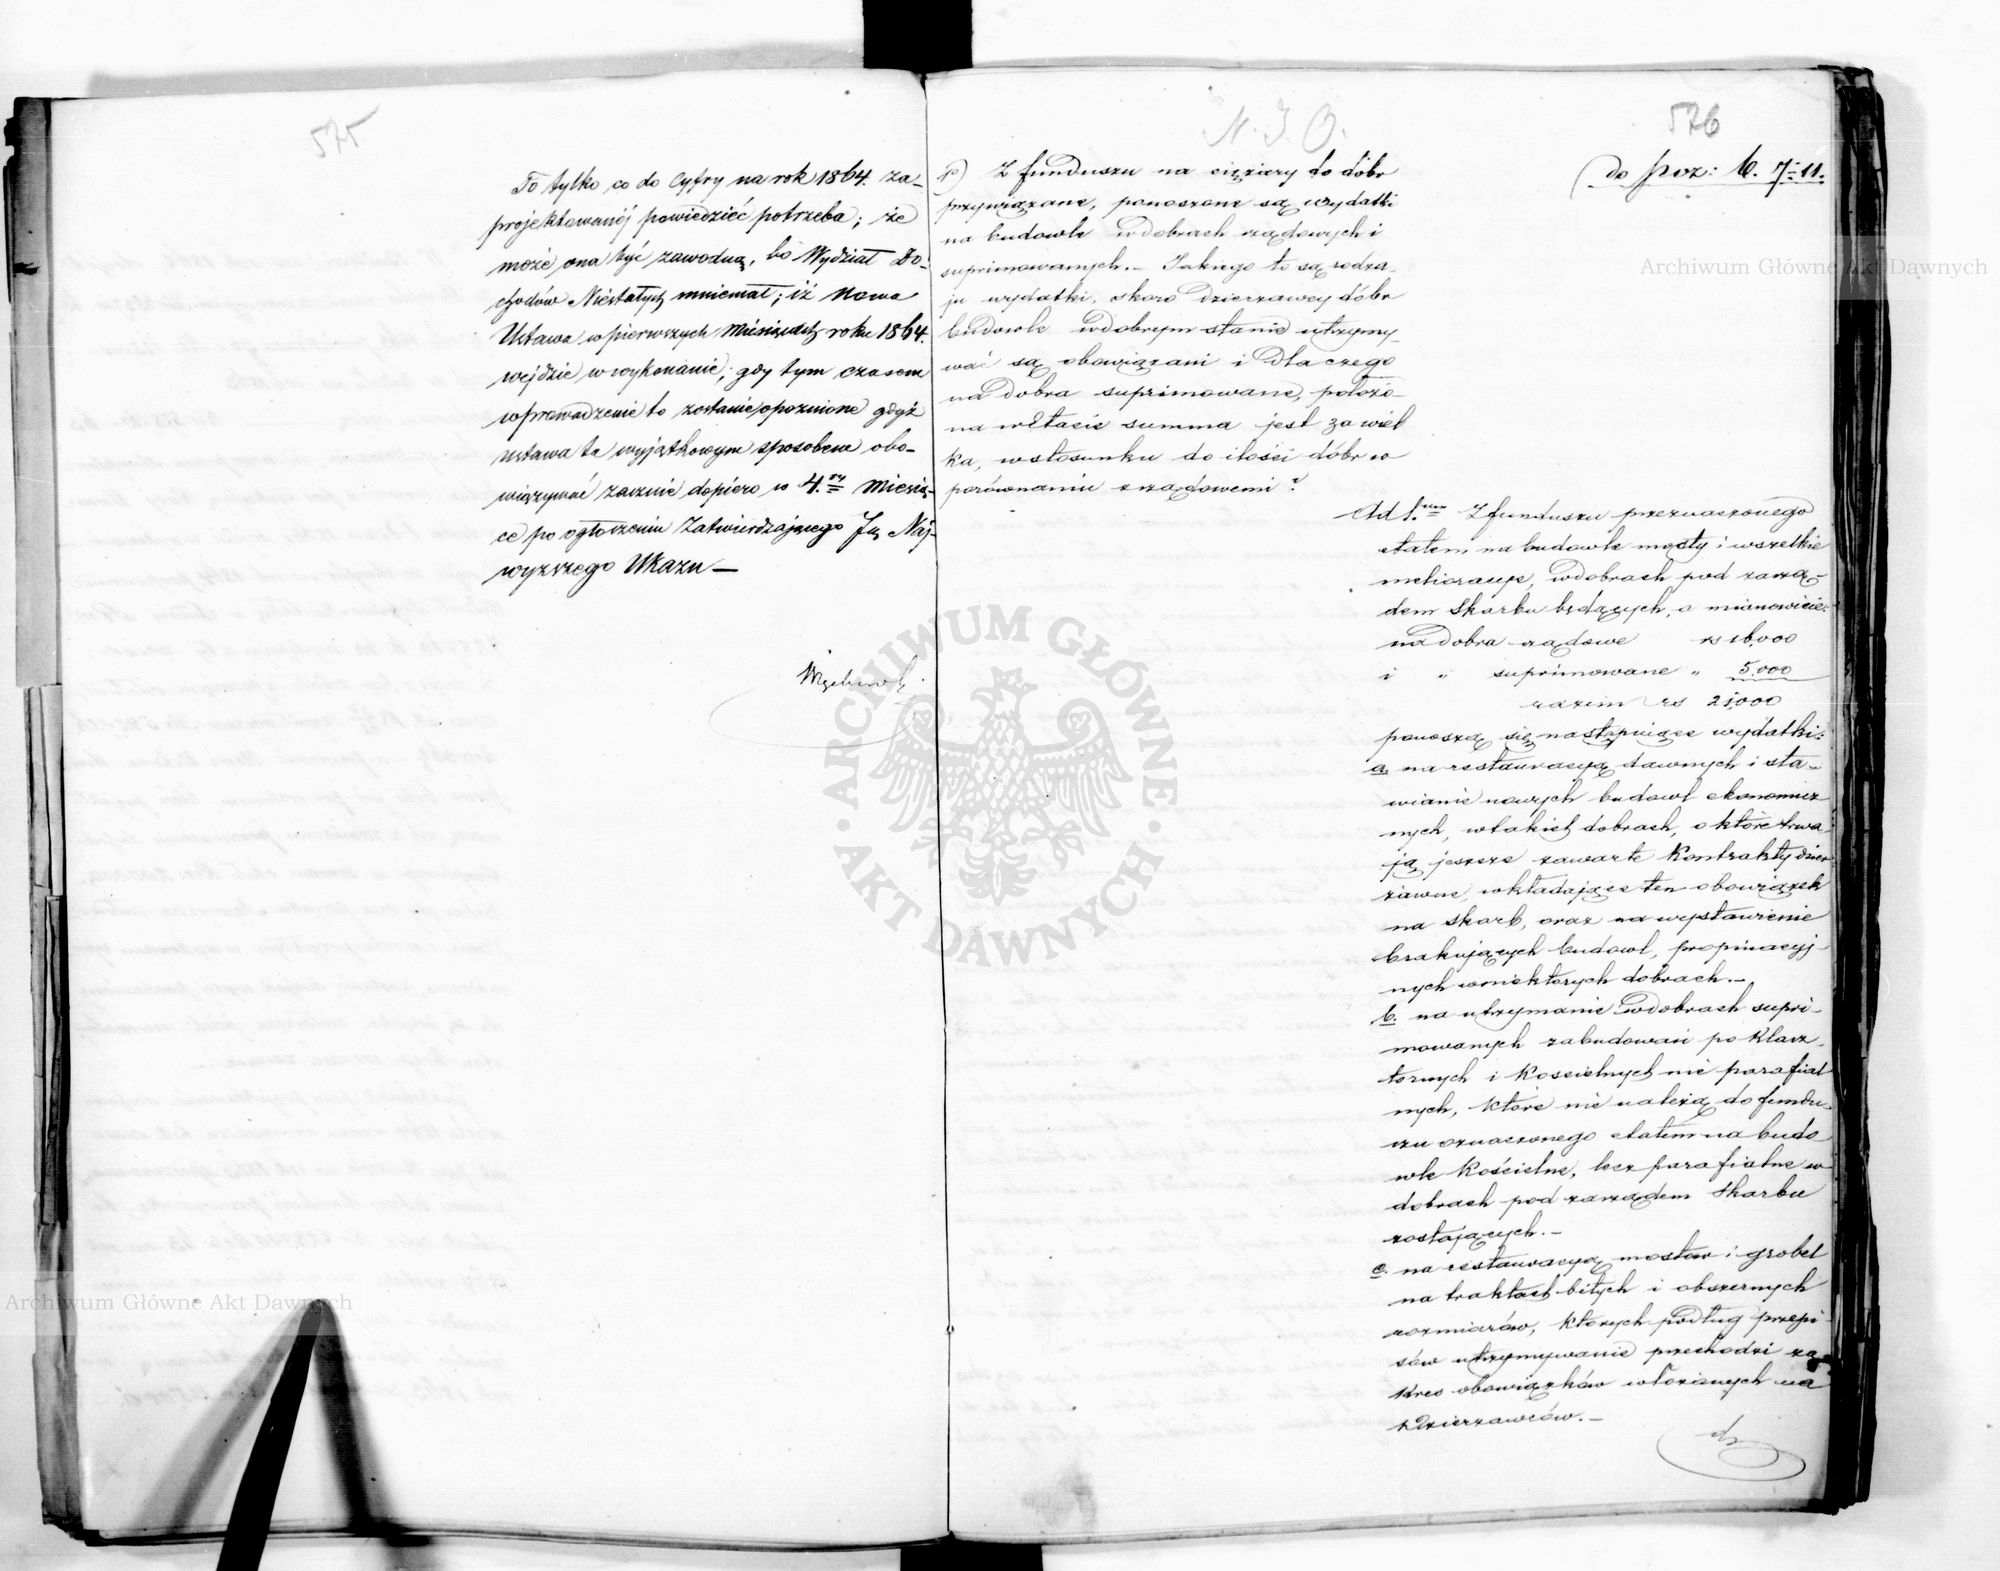 575
To tylko co do Cyfry na rok 1864. za-
projektowanéj powiedzieć potrzeba; że
może ona być zawodną, bo Wydział Do-
chodów Niestałych mniemał; iż Nowa
Ustawa w pierwszych Miesiącach roku 1864.
wejdzie w wykonanie; gdy tym czasem
wprowadzenie to zostanie opoznione gdyż
ustawa ta wyjątkowym sposobem obo-
wiązywać zacznie dopiero w 4.ym Miesią-
ce po ogłoszeniu Zatwierdzającego Ją Naj-
wyższego Ukazu —
N. 3. O.
576
do poz: 6. 7-11.
Z funduszu na ciężary do dóbr
przywiązane, ponoszone są wydatki
na budowle w dobrach rządowych i
suprimowanych. — Jakiego to są rodza-
ju wydatki, skoro Dzierżawcy dóbr
budowle w dobrym stanie utrzymy-
wać są obowiązani i Dla czego
na Dobra suprimowane, położo-
na w Etacie summa jest za wiel
ka, w stosunku do ilości dóbr w
porównaniu z rządowemi?
Ad 1.um Z funduszu przeznaczonego
etatem na budowle mosty i wszelkie
melioracye, w dobrach pod zarzą-
dem Skarbu będących, a mianowicie:
na Dobra rządowe rs 16,000
i " suprimowane " 5,000
razem rs 21,000
ponoszą się następujące wydatki:
a. na restauracyą dawnych i sta-
wianie nowych budowl ekonomicz
nych, w takich dobrach, o które trwa
ją jeszcze zawarte Kontrakty dzier
żawne, wkładające ten obowiązek
na Skarb, oraz na wystawienie
brakujących budowl, propinacyj-
nych w niektórych dobrach. —
b. na utrzymanie w dobrach supri-
mowanych zabudowań po Klasz-
tornych i Kościelnych nie parafial-
nych, które nie należą do fundu-
szu oznaczonego etatem na budo
wle Kościelne, lecz parafialne w
dobrach pod zarządem Skarbu
zostających. —
c. na restauracyą mostów i grobel
na traktach bitych i obszernych
rozmiarów, których podług przepi-
sów utrzymywanie przechodzi za
kres obowiązków włożonych na
Dzierżawców. —
ARCHIWUM GŁÓWNE AKT DAWNYCH
Archiwum Główne Akt Dawnych
Archiwum Główne Akt Dawnych